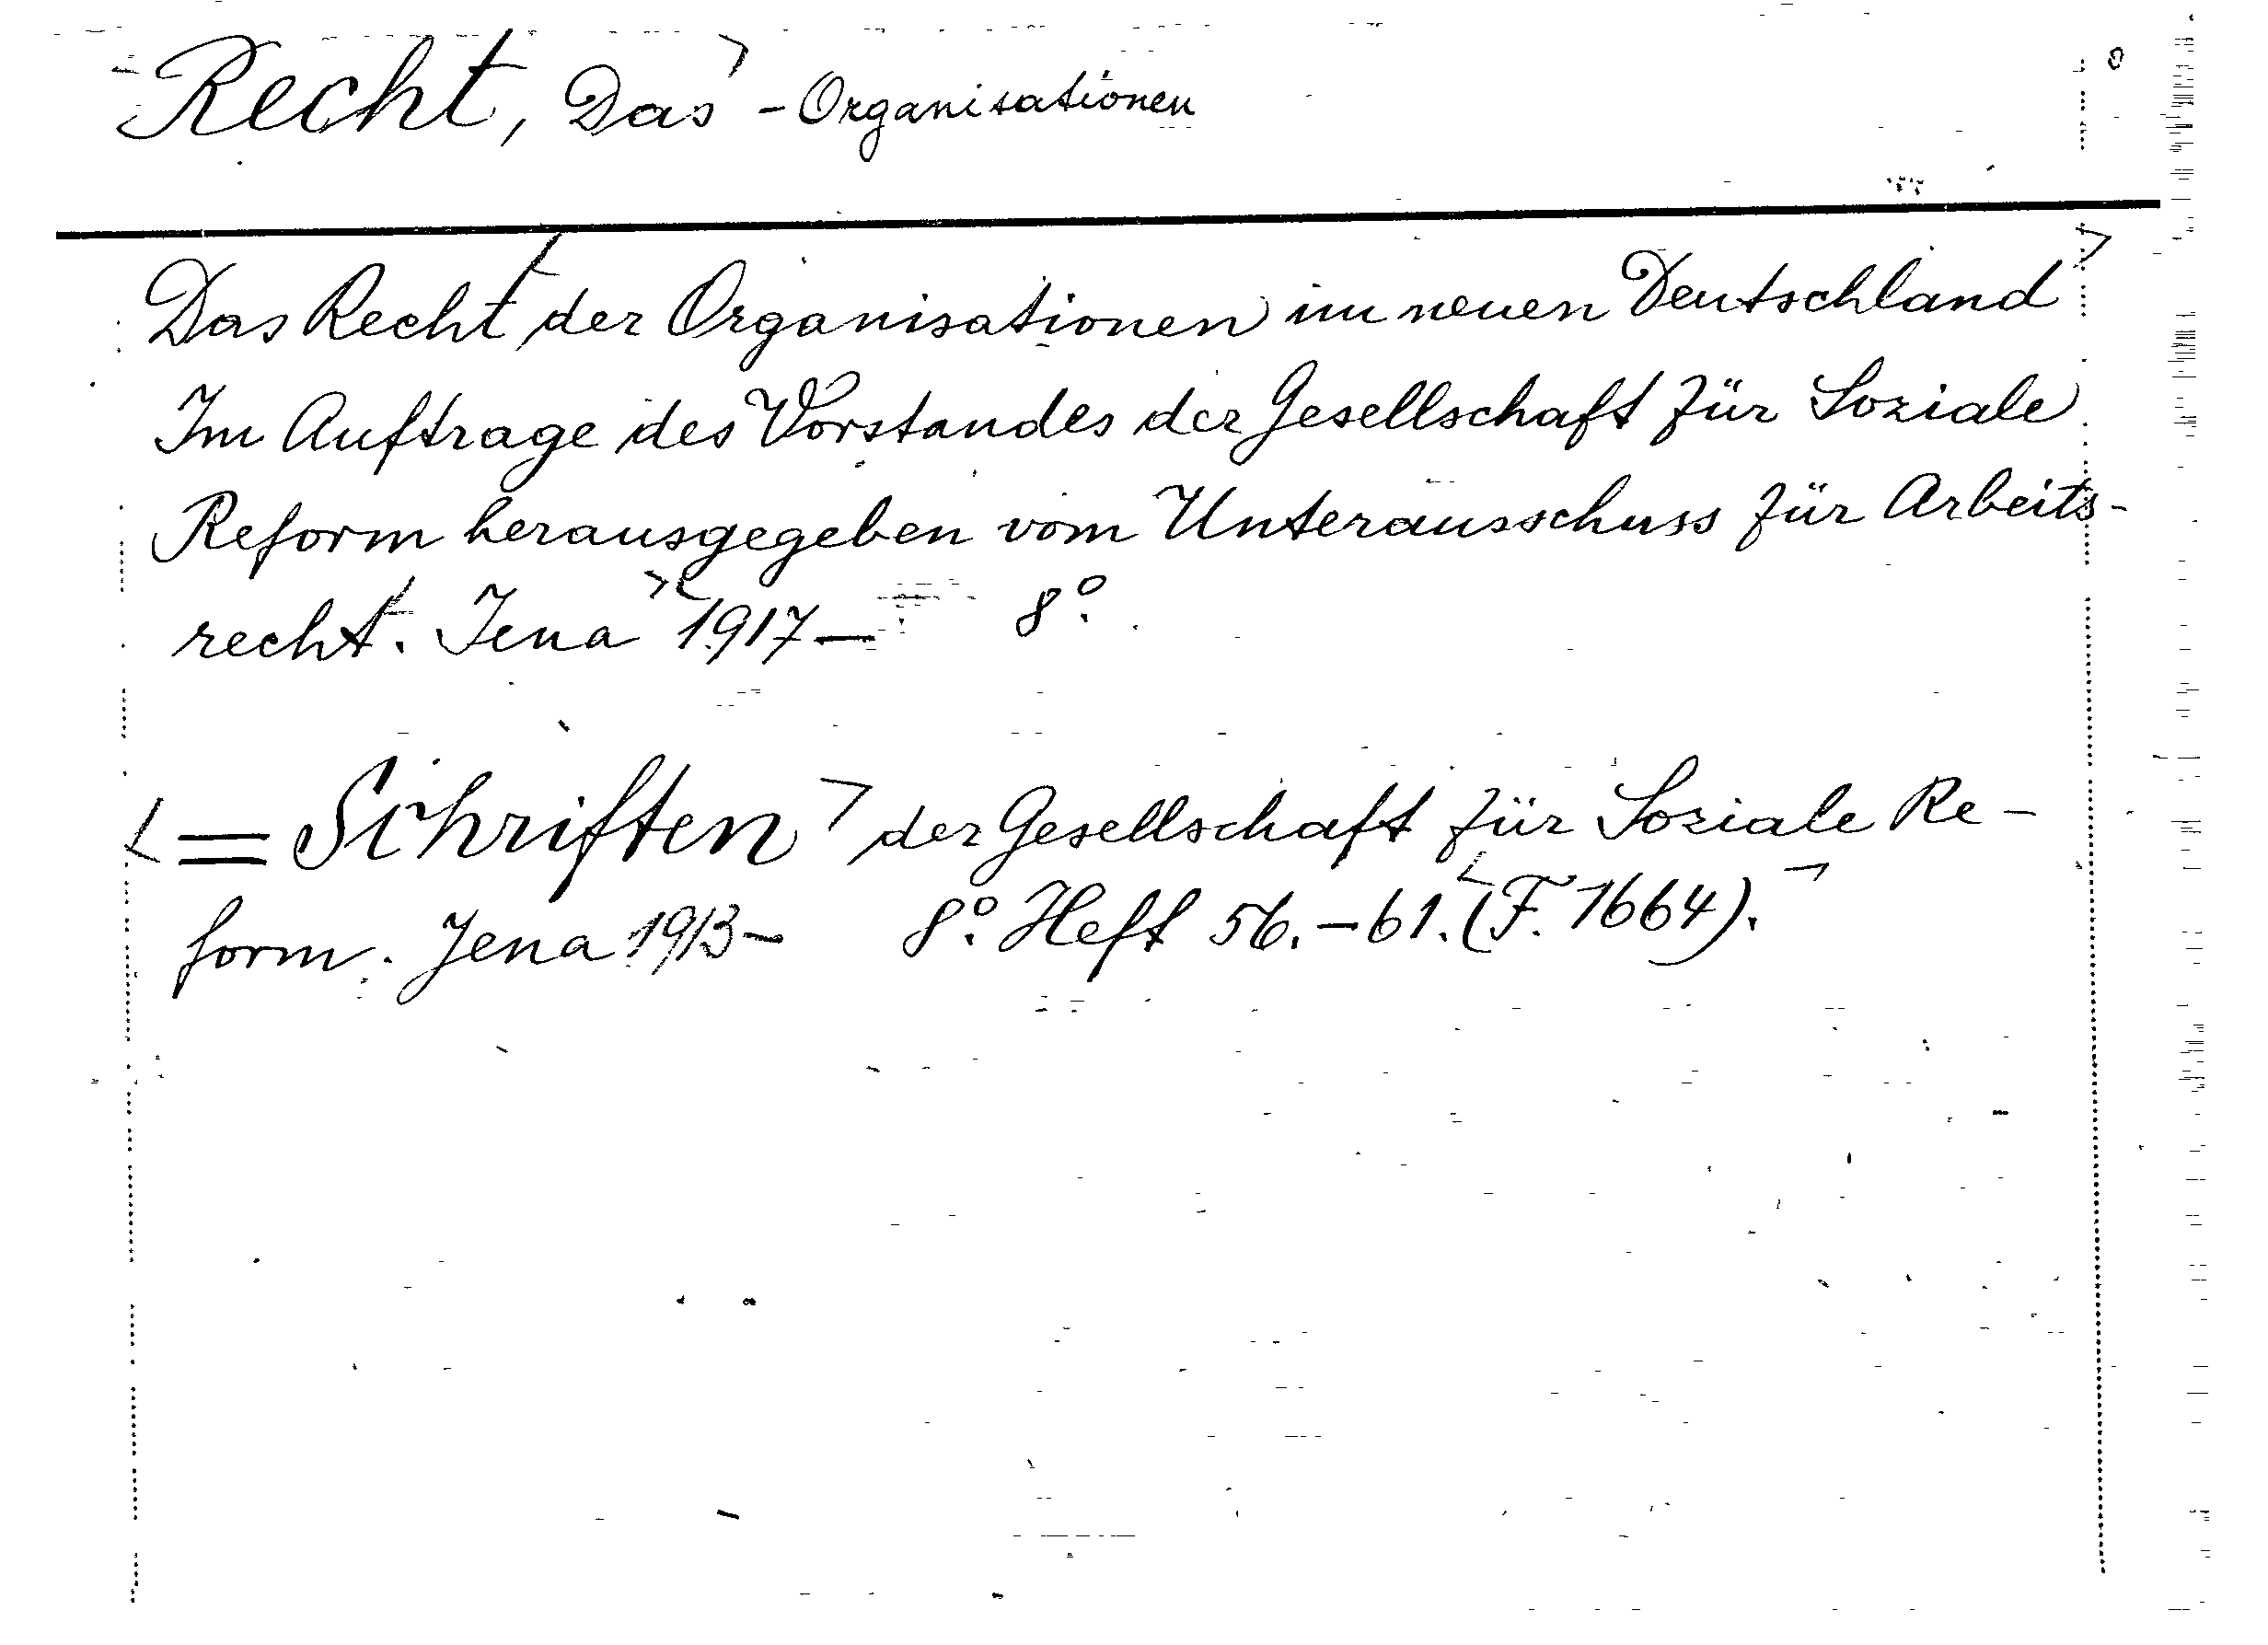 Recht, Das - Organisationen
Das Recht der Organisationen im neuen Deutschland
Im Auftrage des Vorstandes der Gesellschaft für Soziale
Reform herausgegeben vom Unterausschuss für Arbeits-
recht. Jena 1917— 8°.
= Schriften der Gesellschaft für Soziale Re-
form. Jena 1913- 8°. Heft 56.-61. (F. 1664).